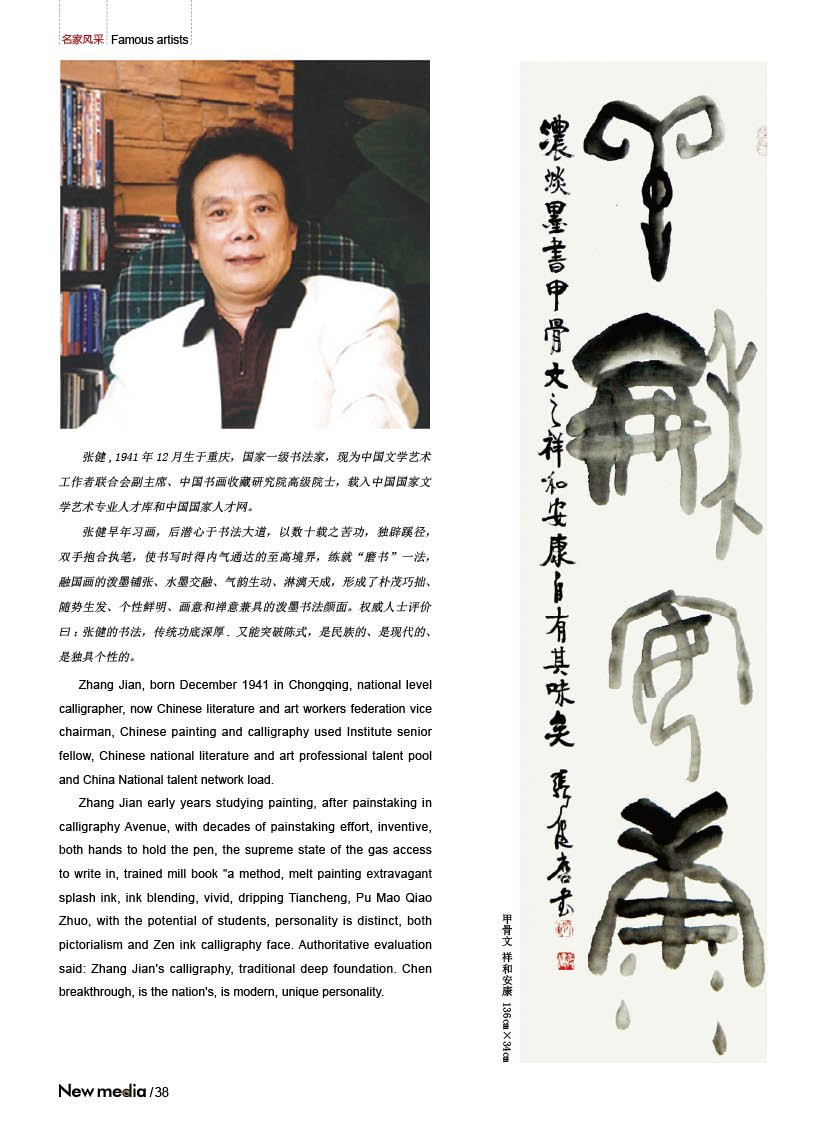 名家风采 Famous artists
张健 , 1941 年 12 月生于重庆，国家一级书法家，现为中国文学艺术
工作者联合会副主席、中国书画收藏研究院高级院士，载入中国国家文
学艺术专业人才库和中国国家人才网。
张健早年习画，后潜心于书法大道，以数十载之苦功，独辟蹊径，
双手抱合执笔，使书写时得内气通达的至高境界，练就“磨书”一法，
融国画的泼墨铺张、水墨交融、气韵生动、淋漓天成，形成了朴茂巧拙、
随势生发、个性鲜明、画意和禅意兼具的泼墨书法颜面。权威人士评价
曰：张健的书法，传统功底深厚．又能突破陈式，是民族的、是现代的、
是独具个性的。
Zhang Jian, born December 1941 in Chongqing, national level
calligrapher, now Chinese literature and art workers federation vice
chairman, Chinese painting and calligraphy used Institute senior
fellow, Chinese national literature and art professional talent pool
and China National talent network load.
Zhang Jian early years studying painting, after painstaking in
calligraphy Avenue, with decades of painstaking effort, inventive,
both hands to hold the pen, the supreme state of the gas access
to write in, trained mill book "a method, melt painting extravagant
splash ink, ink blending, vivid, dripping Tiancheng, Pu Mao Qiao
Zhuo, with the potential of students, personality is distinct, both
pictorialism and Zen ink calligraphy face. Authoritative evaluation
said: Zhang Jian's calligraphy, traditional deep foundation. Chen
breakthrough, is the nation's, is modern, unique personality.
祥和安康
濃淡墨書甲骨文之祥和安康自有其味矣 張健磨書
甲骨文 祥和安康 136cm×34cm
New media / 38